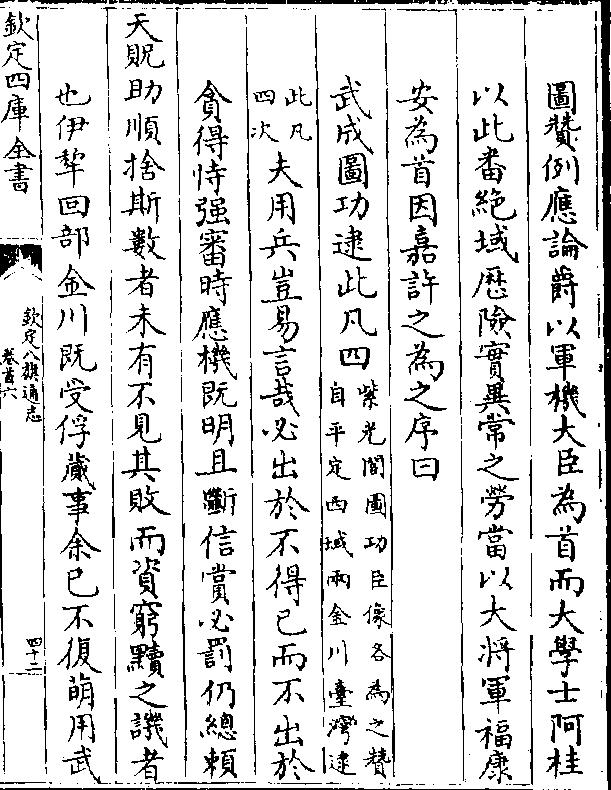 圖贊例應論爵以軍機大臣為首而大學士阿桂
以此番絶域歴險實異常之勞當以大將軍福康
安為首因嘉許之為之序曰
武成圖功逮此凡四紫光閣圖功臣像各為之贊
自平定西域兩金川臺灣逮
此凡
四次夫用兵豈易言哉必出於不得已而不出於
貪得恃强審時應機既明且斷信賞必罰仍總頼
天貺助順捨斯數者未有不見其敗而資窮黷之譏者
也伊犂回部金川既受俘蕆事余已不復萌用武
欽定四庫全書
欽定八旗通志
卷首六
四十二